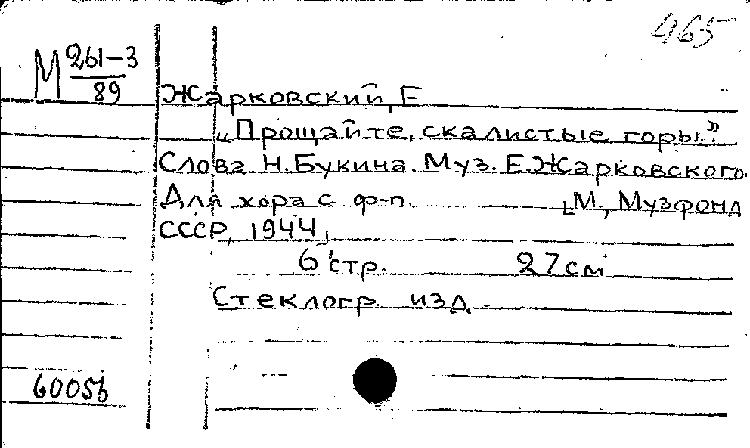 465
М 261-3
89
Жарковский, Е
„Прощайте, скалистые горы."
Слова Н. Букина. Муз. Е. Жарковского.
Для хора с ф-п. [М., Музфонд
СССР, 1944]
6 стр. 27 см
Стеклогр. изд.